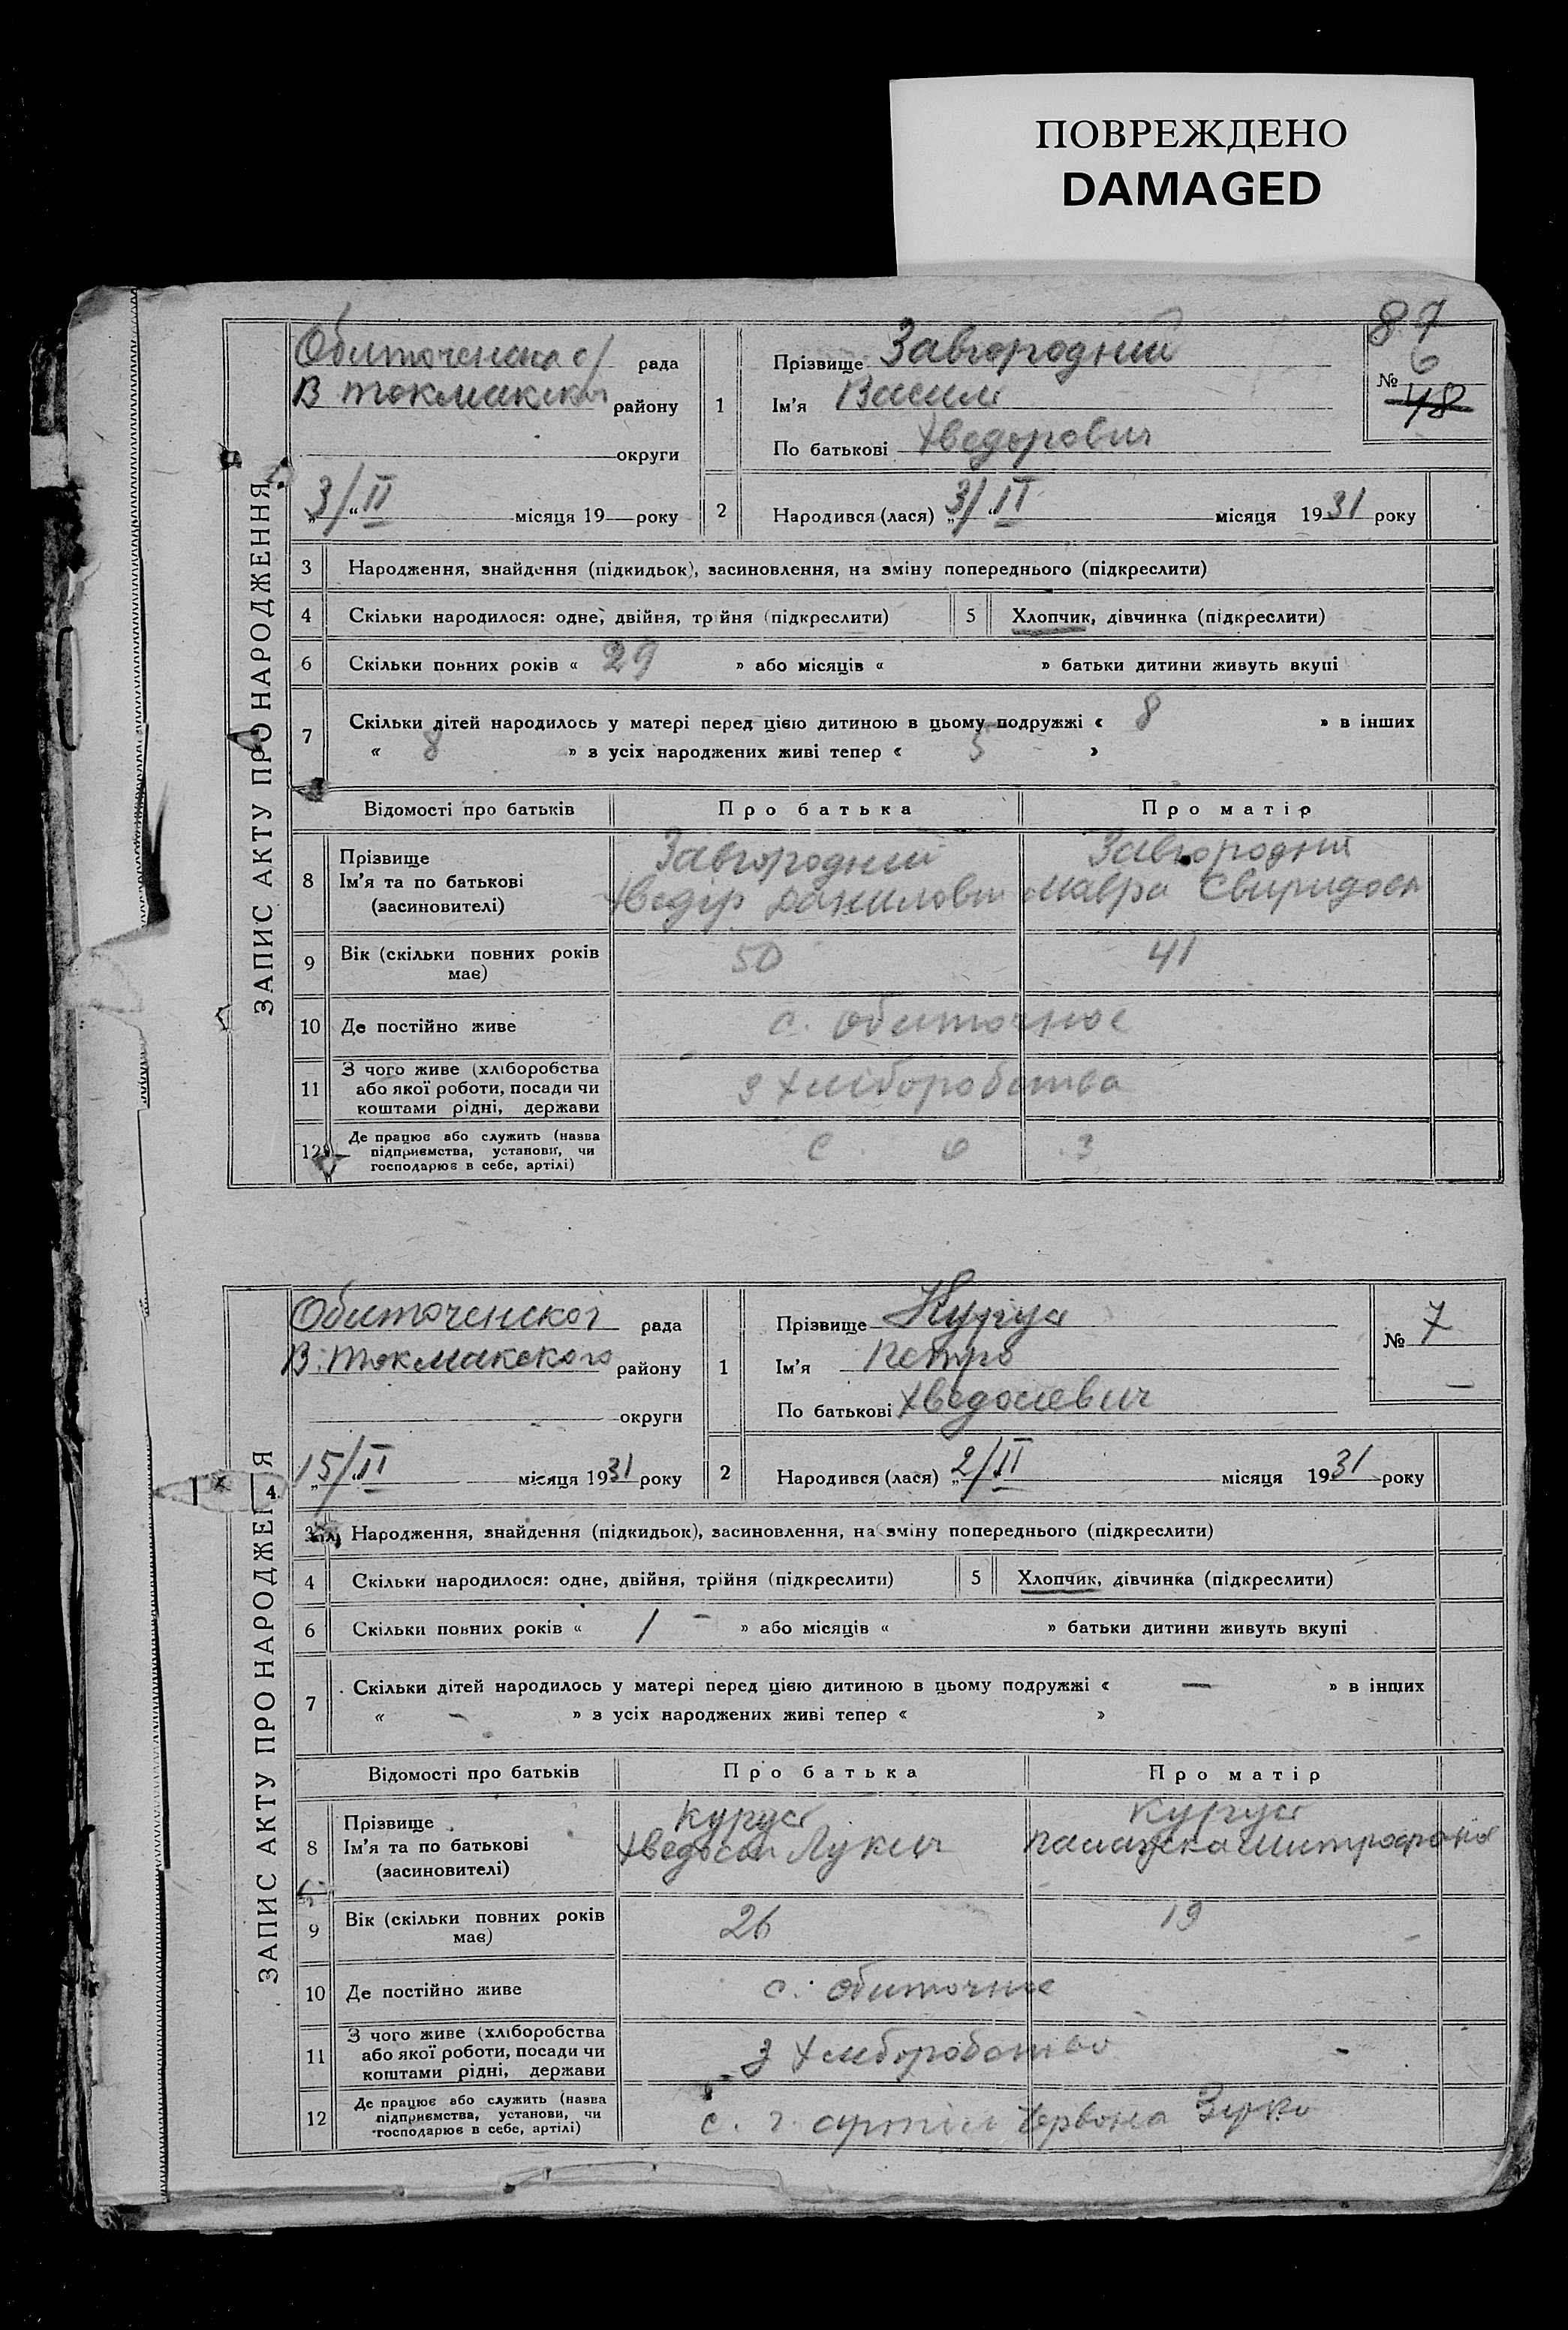 ПОВРЕЖДЕНО
DAMAGED
87
ЗАПИС АКТУ ПРО НАРОДЖЕННЯ
рада
В Токмакског району
округи
3/II місяця 19 року
1
Прізвище Завгородний
Ім’я Васил
По батькові Хведорович
№ 6
48
2
Народився (лася) 3/II місяця 1931 року
3 Народження, знайдення (підкидьок), засиновлення, на зміну попереднього (підкреслити)
4 Скільки народилося: одне, двійня, трійня (підкреслити)
5 Хлопчик, дівчинка (підкреслити)
6 Скільки повних років « 29 » або місяців « » батьки дитини живуть вкупі
7 Скільки дітей народилось у матері перед цією дитиною в цьому подружжі « 8 » в інших
« 8 » з усіх народжених живі тепер « 5 »
Відомості про батьків Про батька Про матір
8 Прізвище
Ім’я та по батькові
(засиновителі)
Завгородний
Хведір Данилович
Завгородня
Мавра Свиридовн
9 Вік (скільки повних років
має)
50 41
10 Де постійно живе с. Обиточное
11 З чого живе (хліборобства
або якої роботи, посади чи
коштами рідні, держави
з хліборобства
12 Де працює або служить (назва
підприємства, установи, чи
господарює в себе, артілі)
С О З
ЗАПИС АКТУ ПРО НАРОДЖЕ Я
4
Обиточенскоі рада
В. Токмакского району
округи
15/II місяця 1931 року
1
Прізвище
Ім’я Петро
По батькові Хведосиевич
№ 7
2
Народився (лася) 2/II місяця 1931 року
3 Народження, знайдення (підкидьок), засиновлення, на зміну попереднього (підкреслити)
4 Скільки народилося: одне, двійня, трійня (підкреслити)
5 Хлопчик, дівчинка (підкреслити)
6 Скільки повних років « 1 - » або місяців « » батьки дитини живуть вкупі
7 Скільки дітей народилось у матері перед цією дитиною в цьому подружжі « — » в інших
« - » з усіх народжених живі тепер « »
Відомості про батьків Про батька Про матір
8 Прізвище
Ім’я та по батькові
(засиновителі)
Хведосий Лукич
9 Вік (скільки повних років
має)
26 19
10 Де постійно живе с. Обиточное
11 З чого живе (хліборобства
або якої роботи, посади чи
коштами рідні, держави
з хліборобство
12 Де працює або служить (назва
підприємства, установи, чи
господарює в себе, артілі)
с. г. артіл Червона Зірка